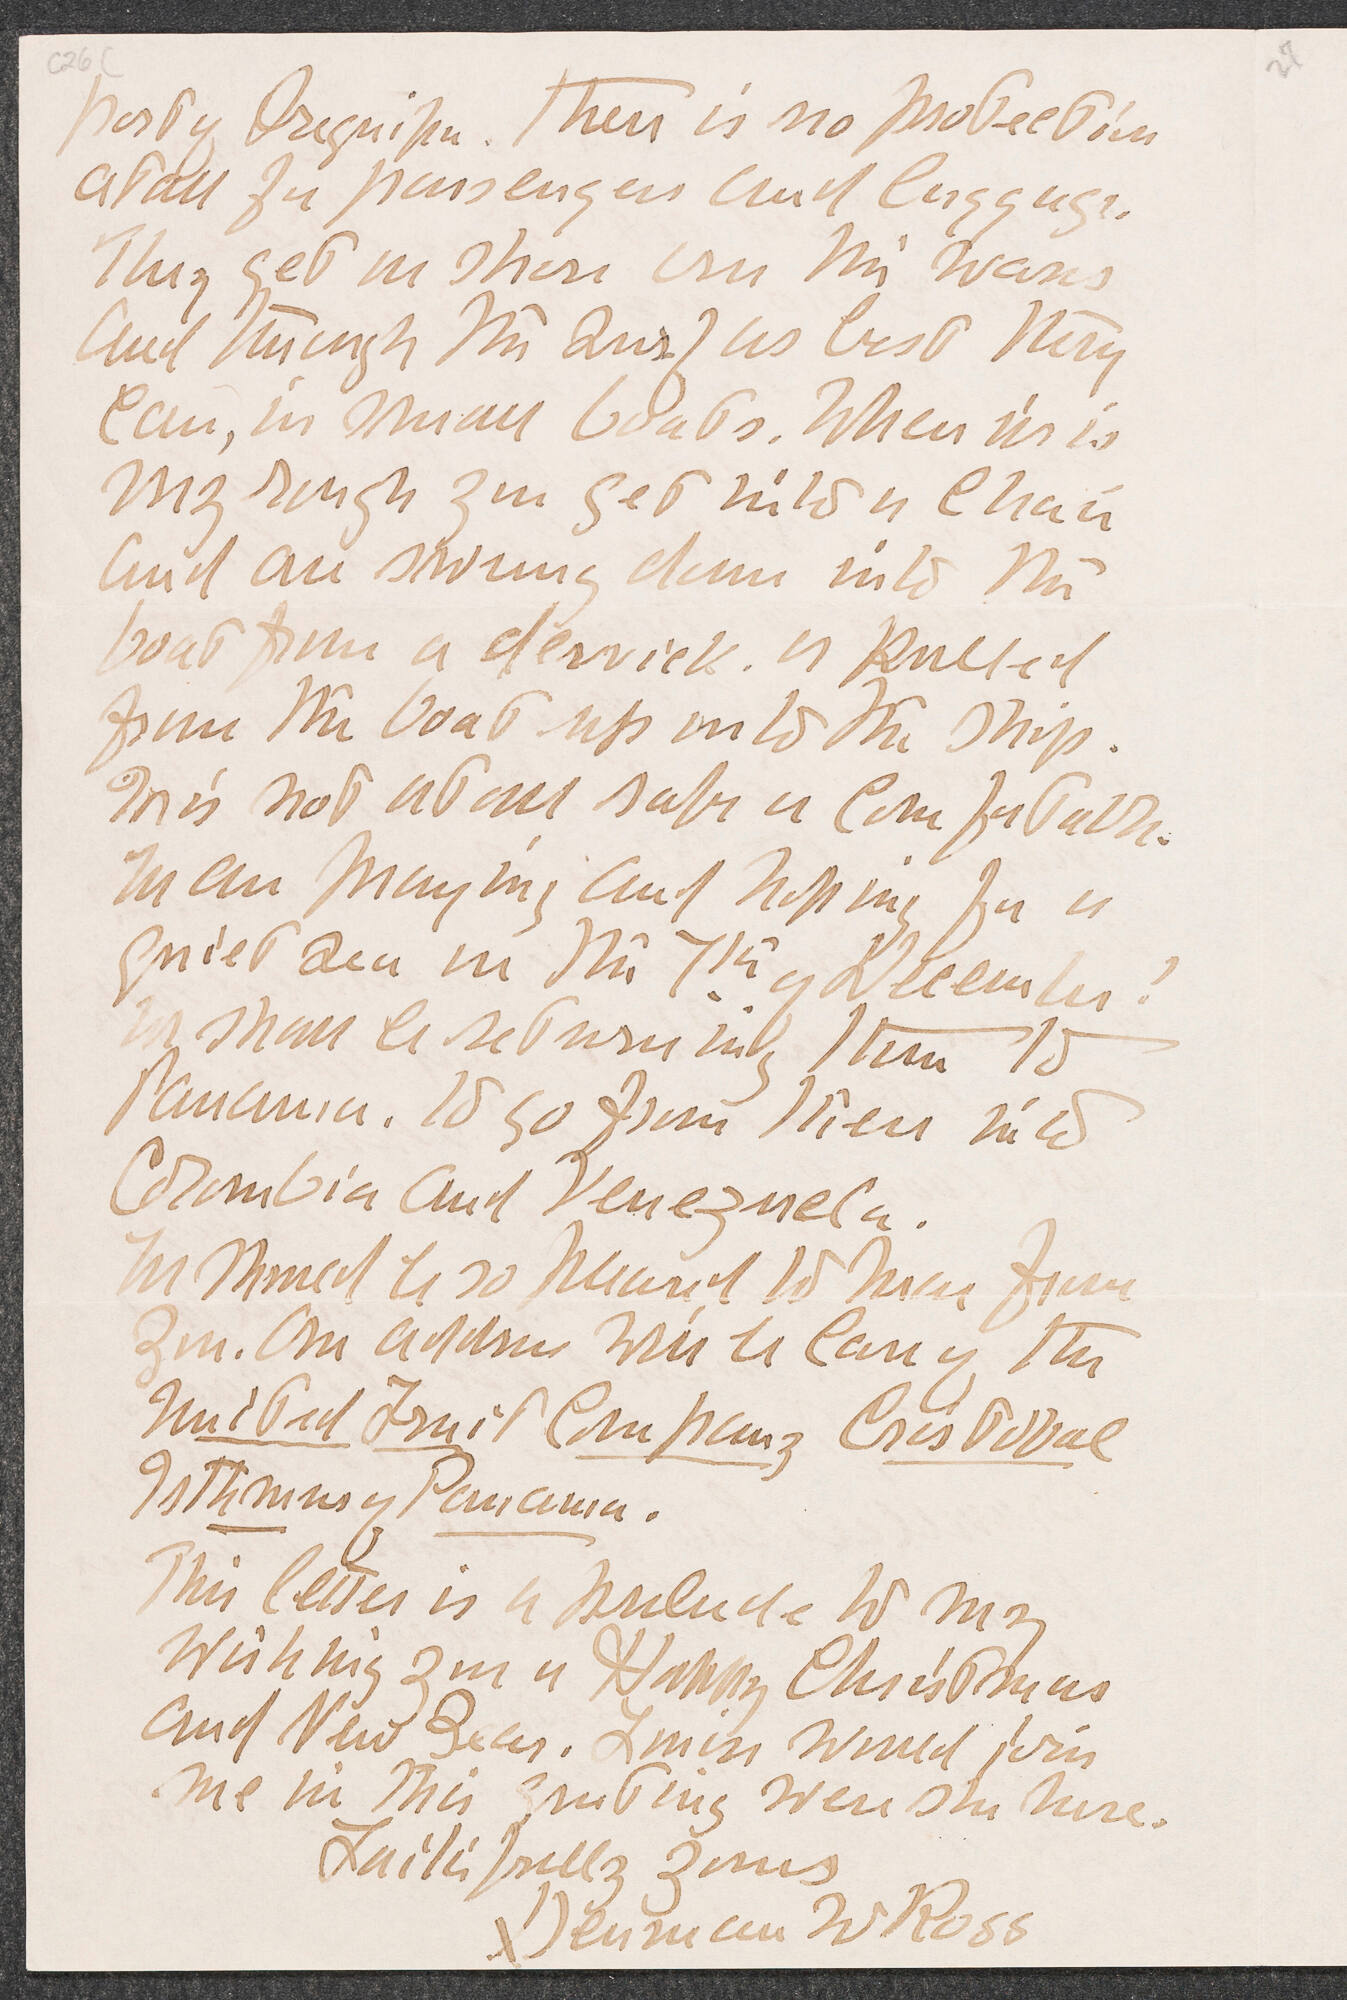 C26 C
27
port of Arequipa. There is no protection
at all for passengers and luggage.
They get on shore over the waves
and through the surf as best they
can, in small boats. When it is
very rough you get into a chair
and are swung down into the
boat from a derrick. or pulled
from the boat up onto the ship.
It is not at all safe or comfortable.
We are praying and hoping for a
quiet sea on the 7th of December!
We shall be returning then to
Panama. to go from there into
Colombia and Venezuela.
We should be so pleased to hear from
you. Our address will be care of the
United Fruit Company Cristobal
Isthmus of Panama.
This letter is a prelude to my
wishing you a Happy Christmas
and New Year. Louise would join
me in this greeting were she here.
Faithfully yours
Denman W Ross